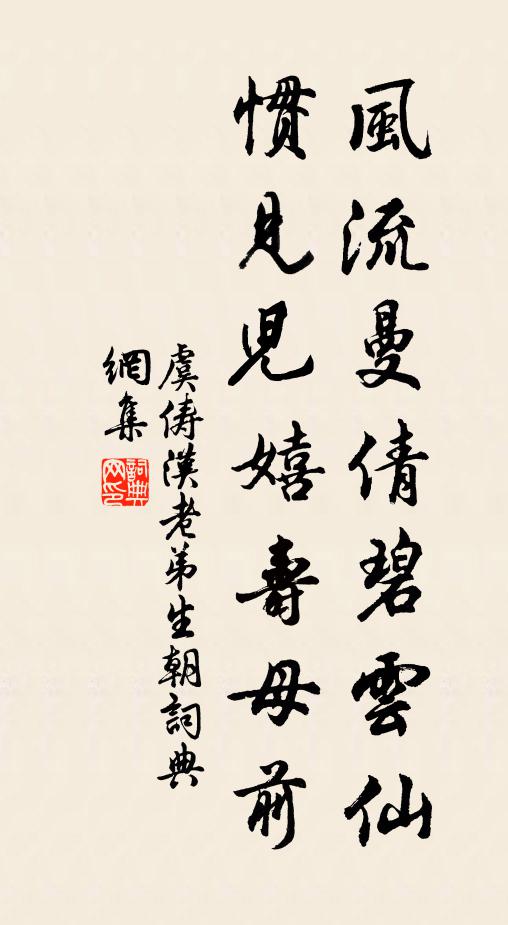 風流曼倩碧雲仙
慣見兒嬉壽母前
虞儔漢老弟生朝詞典
網集
詞典網印